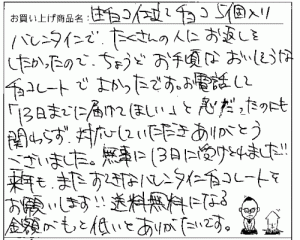 お買い上げ商品名： チョコ仕立て チョコ 5個入り
バレンタインで、たくさんの人にお返しを
したかったので、ちょうどお手頃なおいしそうな
チョコレートでよかったです。お電話して
「13日までに届けてほしい」と急だったのにも
関わらず、対応していただきありがとう
ございました。無事に13日に受けとれました!!
来年も、またすてきなバレンタインチョコレートを
お願いします!! 送料無料になる
金額がもっと低いとありがたいです。